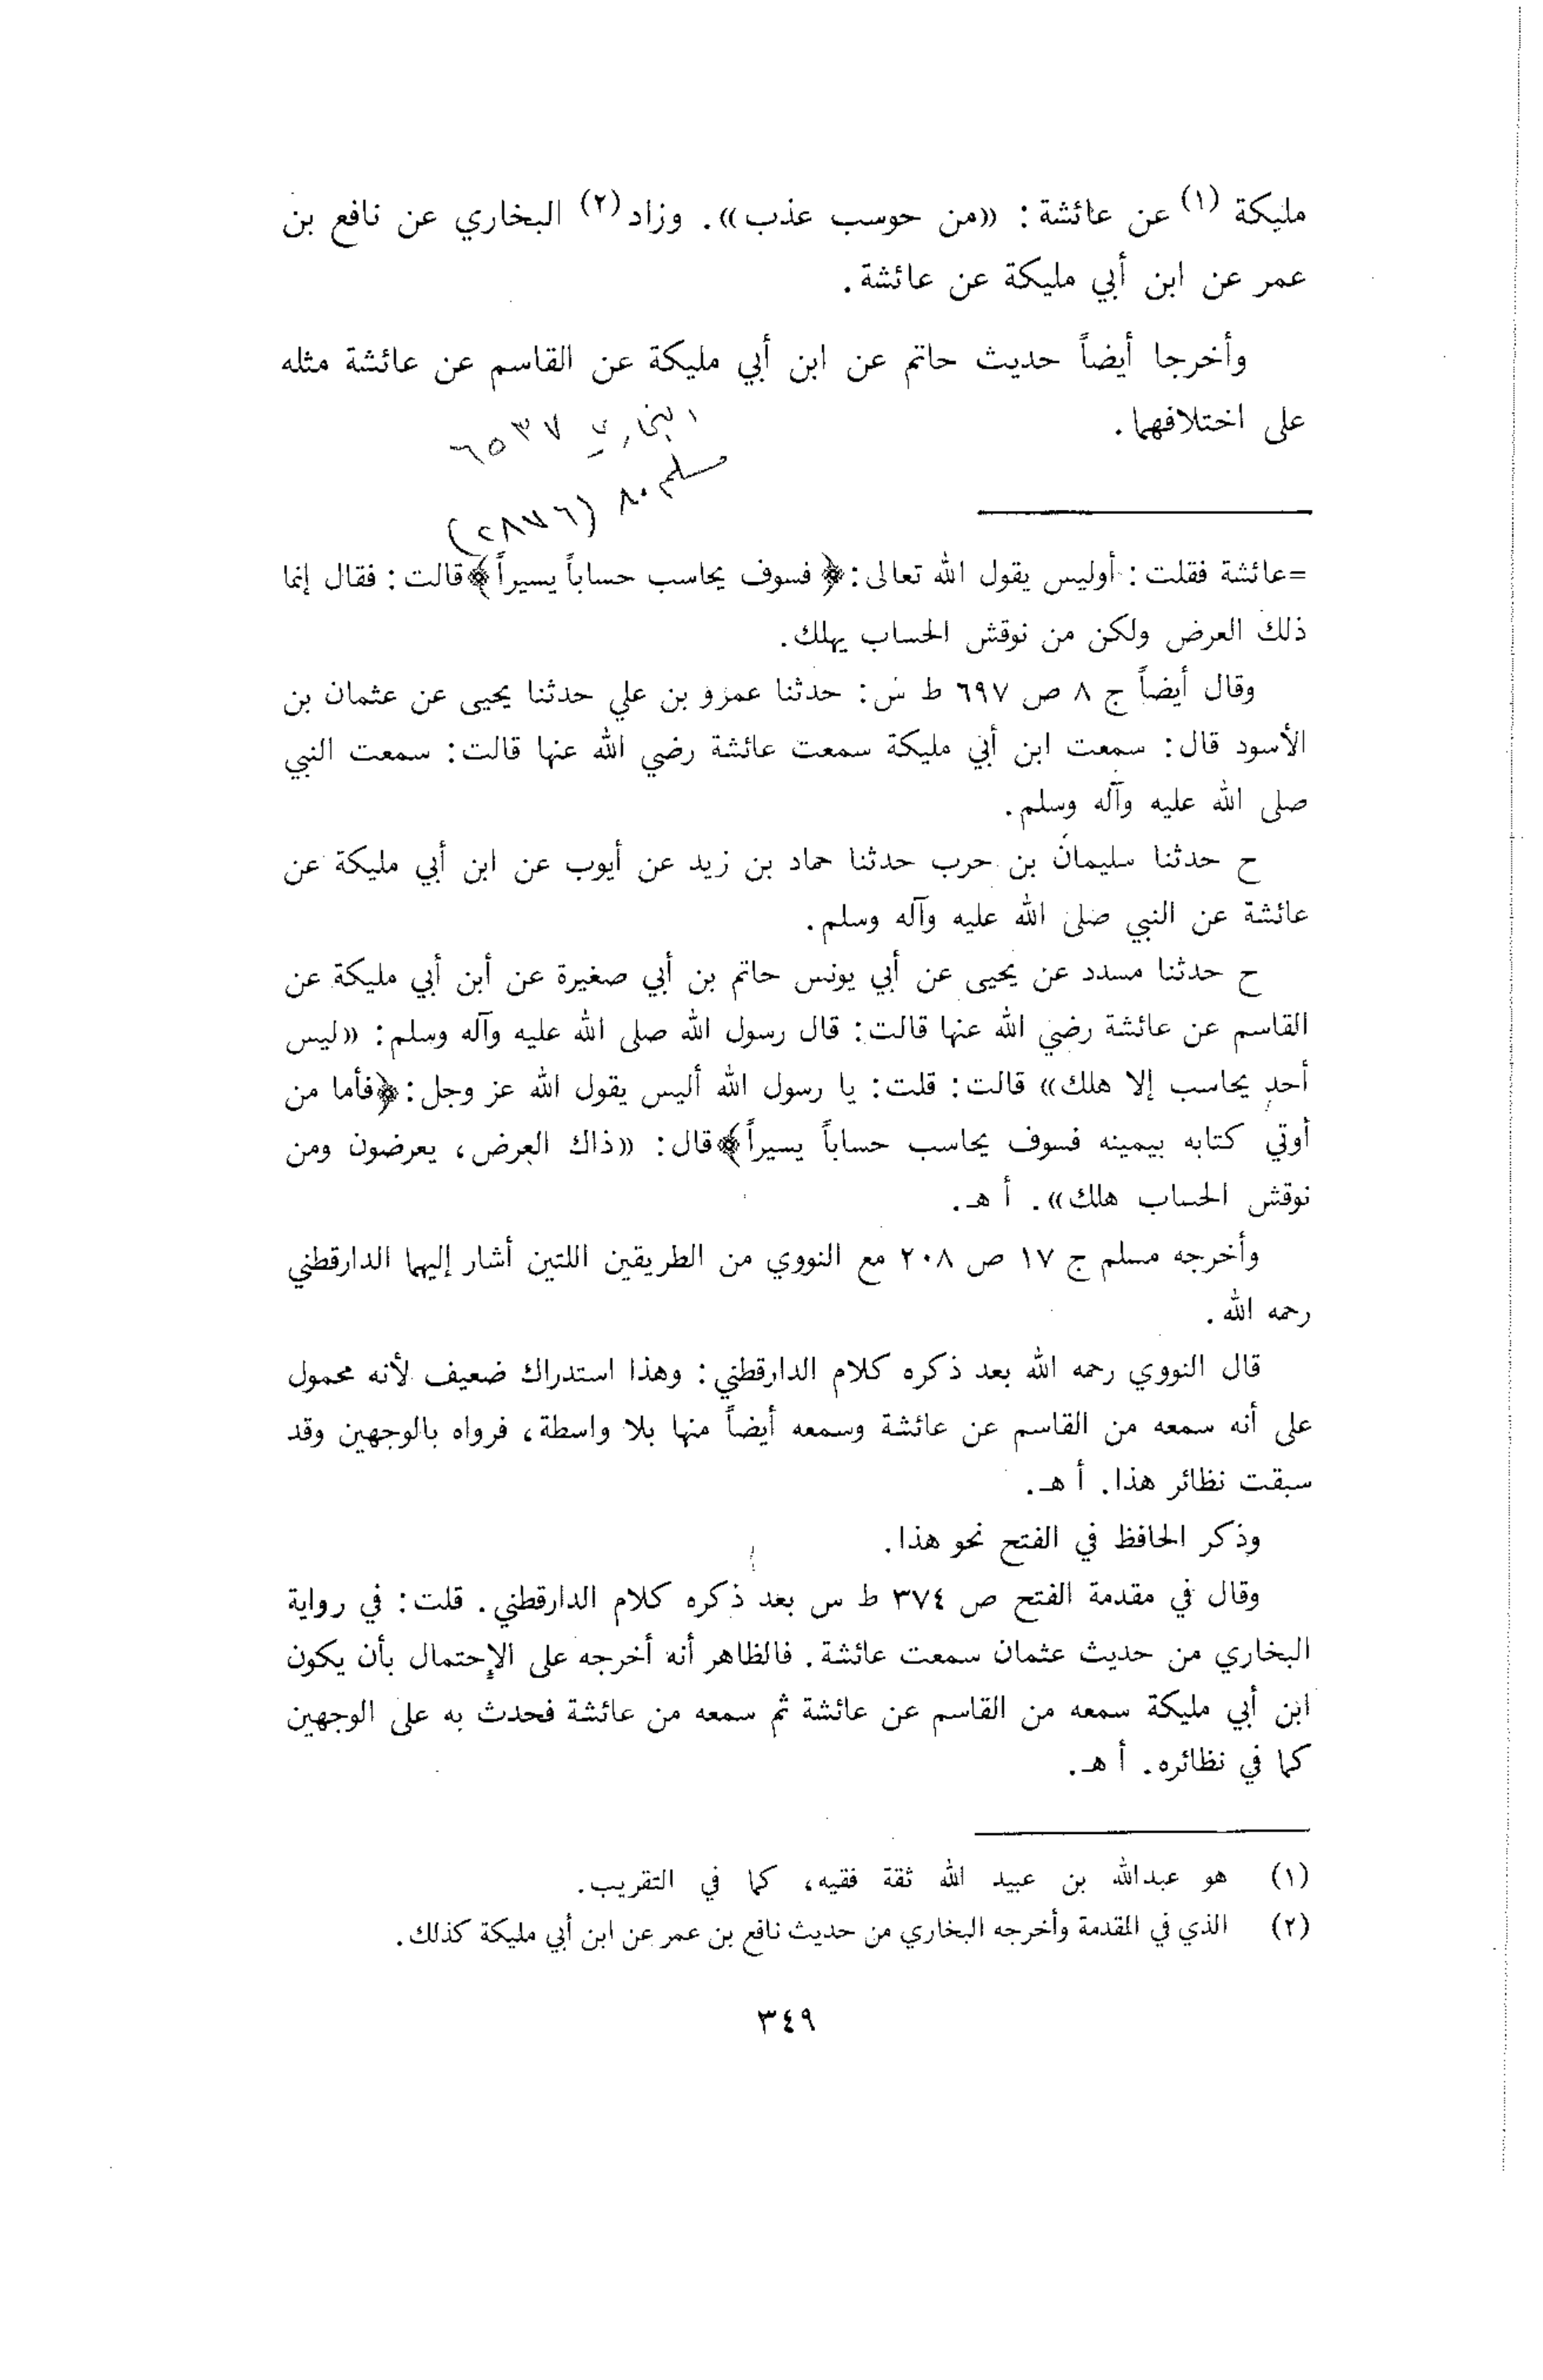 مليكة (١) عن عائشة : «من حوسب عذب» . وزاد (٢) البخاري عن نافع بن
عمر عن ابن أبي مليكة عن عائشة .
وأخرجا أيضاً حديث حاتم عن ابن أبي مليكة عن القاسم عن عائشة مثله
على اختلافهما .
البخاري ٦٥٣٧
مسلم ٨٠ (٢٨٧٦)
=عائشة فقلت : أوليس يقول الله تعالى : ﴿ فسوف يحاسب حساباً يسيراً ﴾ قالت : فقال إنما
ذلك العرض ولكن من نوقش الحساب يهلك .
وقال أيضاً ج ٨ ص ٦٩٧ ط س : حدثنا عمرو بن علي حدثنا يحيى عن عثمان بن
الأسود قال : سمعت ابن أبي مليكة سمعت عائشة رضي الله عنها قالت : سمعت النبي
صلى الله عليه وآله وسلم .
ح حدثنا سليمان بن حرب حدثنا حماد بن زيد عن أيوب عن ابن أبي مليكة عن
عائشة عن النبي صلى الله عليه وآله وسلم .
ح حدثنا مسدد عن يحيى عن أبي يونس حاتم بن أبي صغيرة عن أبن أبي مليكة عن
القاسم عن عائشة رضي الله عنها قالت : قال رسول الله صلى الله عليه وآله وسلم : «ليس
أحد يحاسب إلا هلك» قالت : قلت : يا رسول الله أليس يقول الله عز وجل : ﴿فأما من
أوتي كتابه بيمينه فسوف يحاسب حساباً يسيراً﴾ قال : «ذاك العرض ، يعرضون ومن
نوقش الحساب هلك» . أ هـ .
وأخرجه مسلم ج ١٧ ص ٢٠٨ مع النووي من الطريقين اللتين أشار إليهما الدارقطني
رحمه الله .
قال النووي رحمه الله بعد ذكره كلام الدارقطني : وهذا استدراك ضعيف لأنه محمول
على أنه سمعه من القاسم عن عائشة وسمعه أيضاً منها بلا واسطة ، فرواه بالوجهين وقد
سبقت نظائر هذا . أ هـ .
وذكر الحافظ في الفتح نحو هذا .
وقال في مقدمة الفتح ص ٣٧٤ ط س بعد ذكره كلام الدارقطني . قلت : في رواية
البخاري من حديث عثمان سمعت عائشة . فالظاهر أنه أخرجه على الإحتمال بأن يكون
ابن أبي مليكة سمعه من القاسم عن عائشة ثم سمعه من عائشة فحدث به على الوجهين
كما في نظائره . أ هـ .
(١) هو عبدالله بن عبيد الله ثقة فقيه ، كما في التقريب .
(٢) الذي في المقدمة وأخرجه البخاري من حديث نافع بن عمر عن ابن أبي مليكة كذلك .
٣٤٩